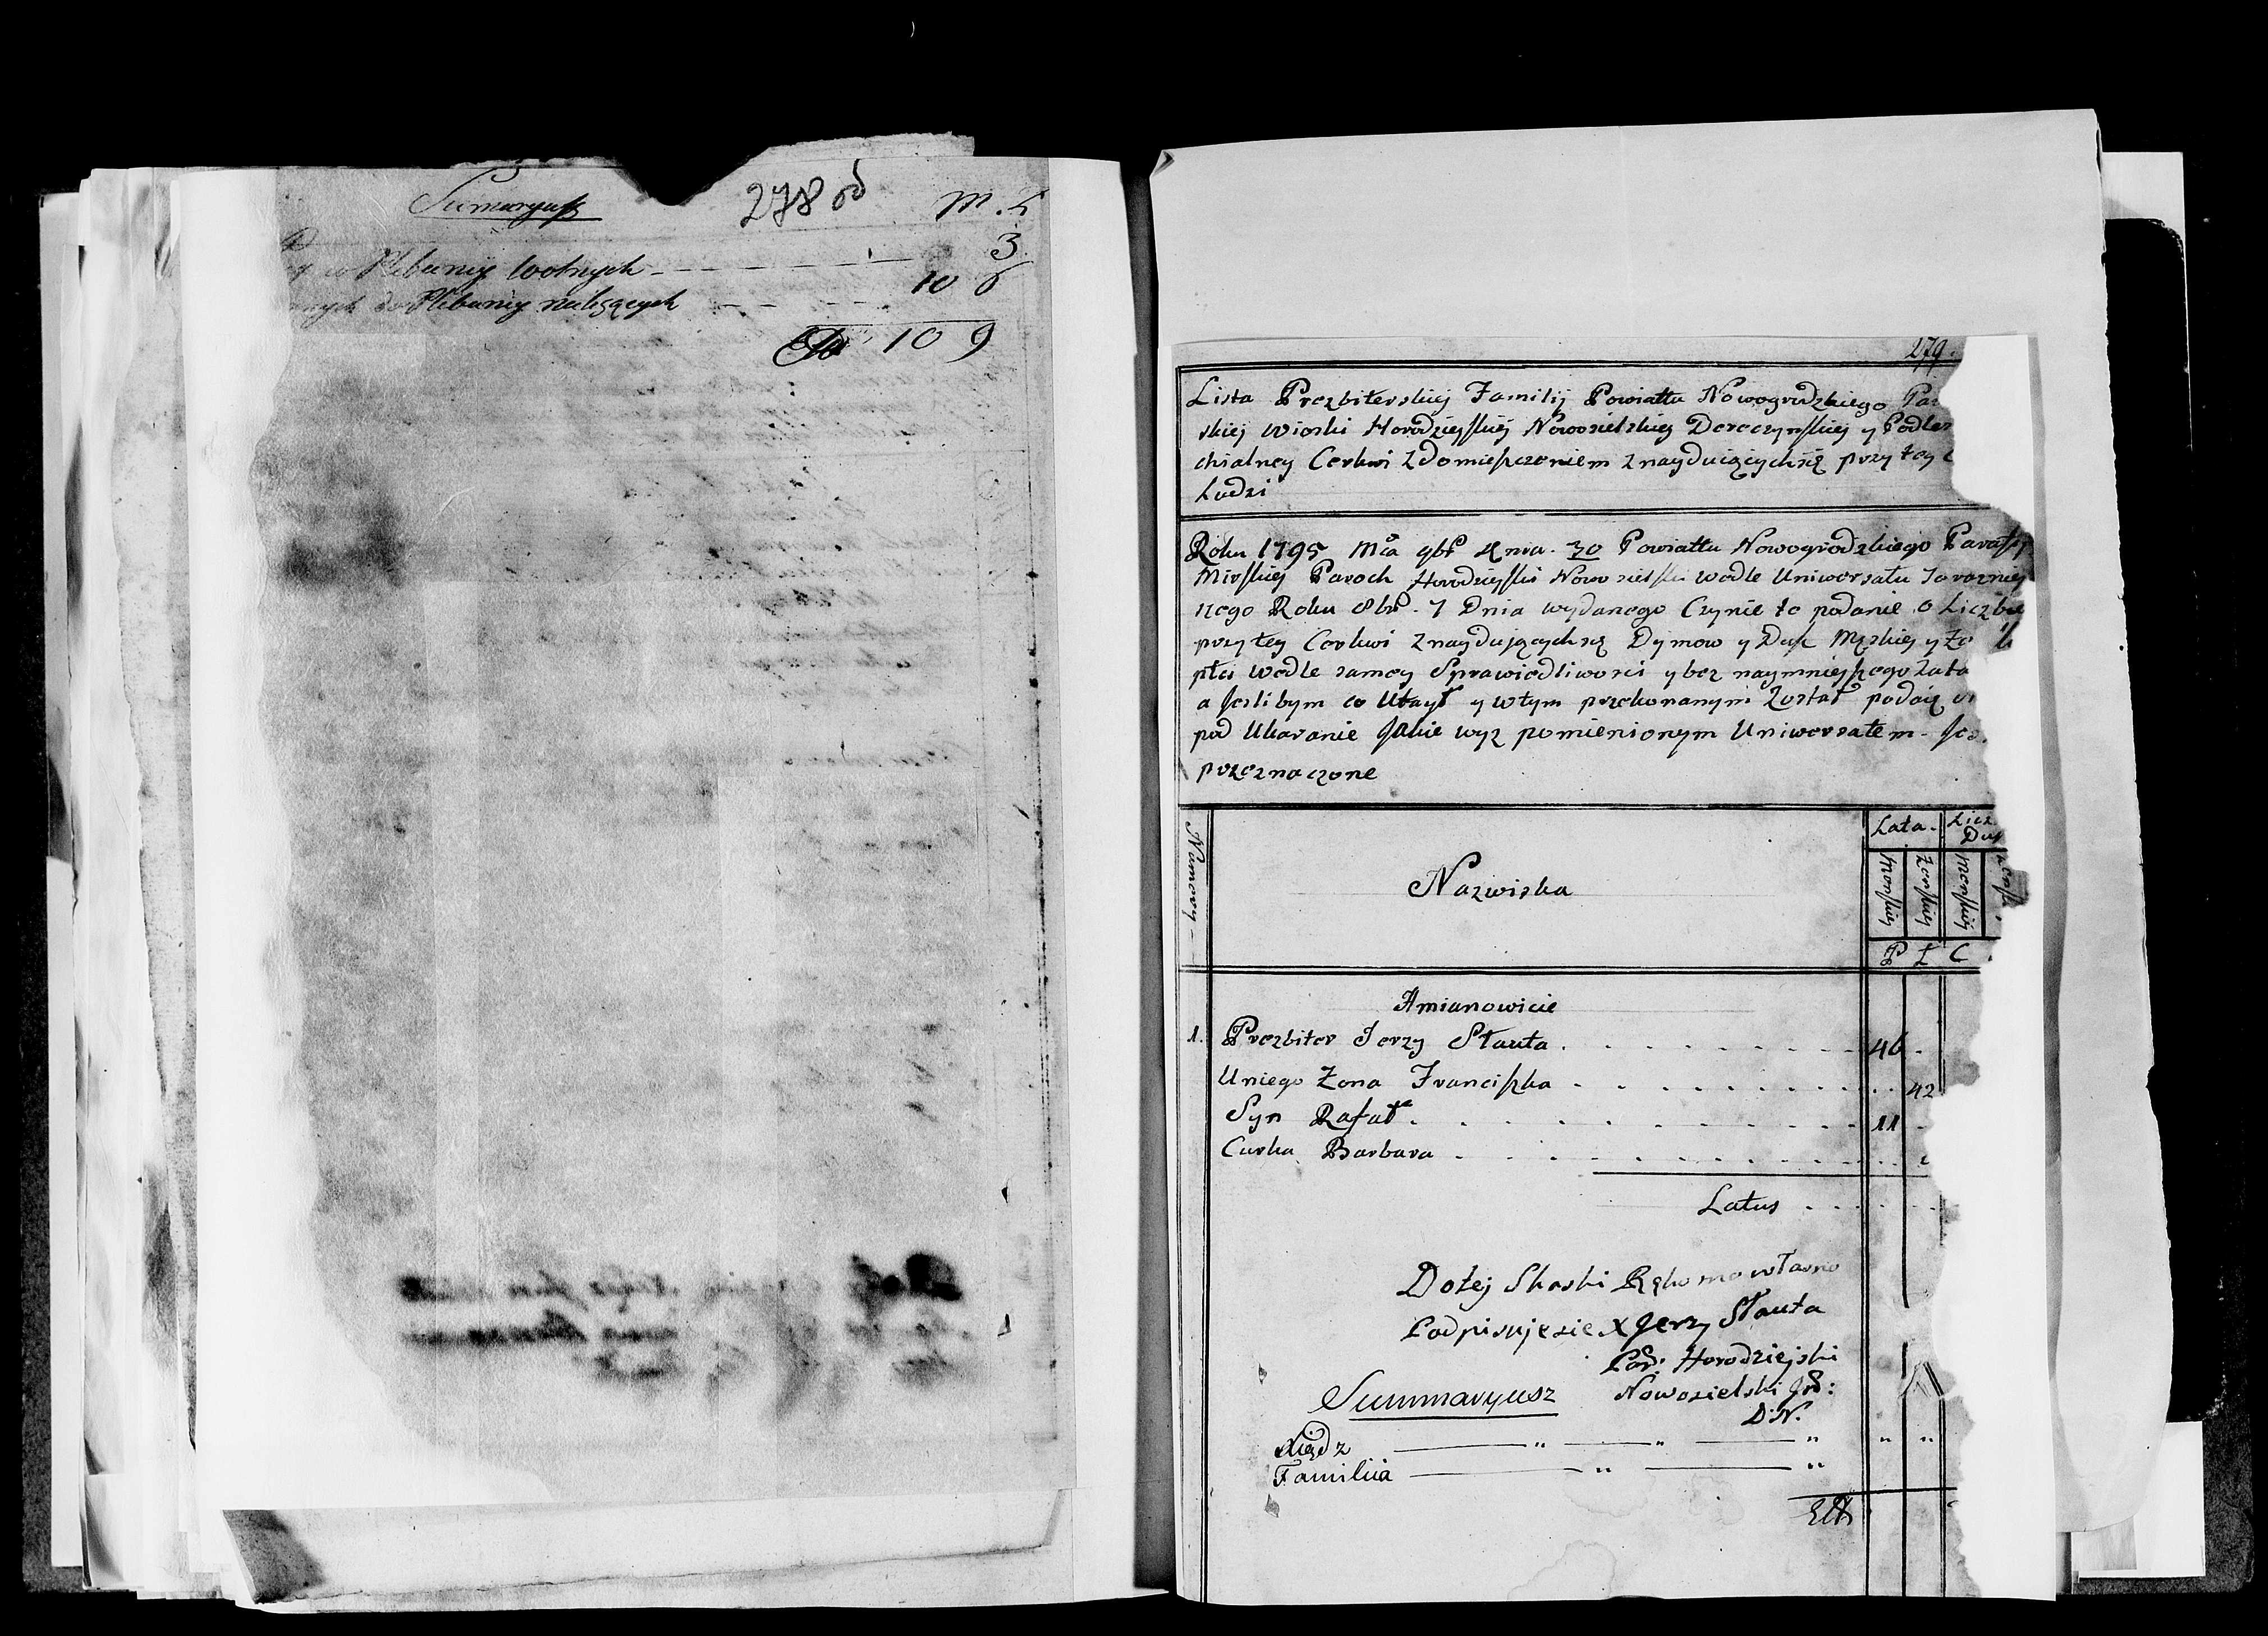 Sumaryusz 278 od M. Ż
3
w Plebaniy wolnych
10 6
do Plebaniy należących
10 9
279.
Lista Prezbiterskiej Familij Powiattu Nowogrodzkiego Par
skiej Wioski Horodziejskiej Nowosielskiey Doroczynskiey y Podles
chialney Cerkwi z Domieszczeniem znayduiącychsię przy tey C
Ludzi
Roku 1795 Mca 9br Dnia 30 Powiattu Nowogrodzkiego Parafiy
Mirskiey Paroch Horodzieyski Nowosielski wedle Uniwersału
nego Roku 8br. 7 Dnia wydanego Czynie to podanie o Liczbie
przy tey Cerkwi znaydujących się Dymow y Dusz Męzkiey y Że
płci wedle samey Sprawiedliwości y bez naymnieyszego zata
a Jeslibym co Utaył y wtym przekonanym Został podaię
pod Ukaranie Jakie wyz pomienionym Uniwersałem Jes
przeznaczone
Numery
Nazwiska
Lata. Licz.
Dus
Menskiey Żenskiey Menskiey
P Ł C
Amianowicie
1. Prezbiter Jerzy Stauta 46
Uniego Żona Franciszka 42
Syn Rafał 11
Curka Barbara
Latus
Dotej Skaski Ręko mo własno
Podpisuje sie X Jerzy Stauta
Par: Horodziejski
Nowosielski
Summaryusz
D. N.
Xiądz
Familiia